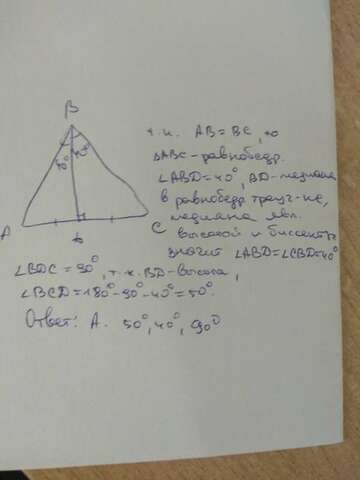 B
40° 40°
A
C
т.к. AB = BC, то
△ABC - равнобедр.
∠ABD = 40°, BD - медиана
в равнобедр треуг-ке,
медиана явл.
высотой и биссектр
значит ∠ABD = ∠CBD = 40°
∠BDC = 90°, т.к. BD - высота,
∠BCD = 180° - 90° - 40° = 50°.
Ответ: А. 50°, 40°, 90°